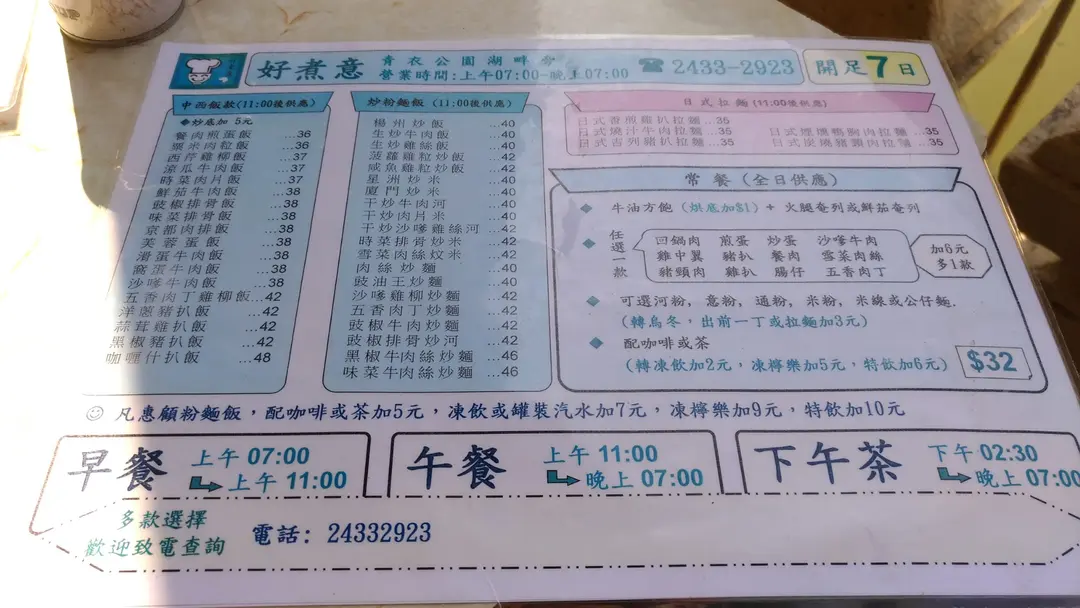 好煮意
青衣公園湖畔旁
營業時間:上午07:00-晚上07:00
☎ 2433-2923
開足7日
中西飯款(11:00後供應)
◆炒底加 5元
餐肉煎蛋飯 ...36
粟米肉粒飯 ...36
西芹雞柳飯 ...37
涼瓜牛肉飯 ...37
時菜肉片飯 ...37
鮮茄牛肉飯 ...38
豉椒排骨飯 ...38
味菜排骨飯 ...38
京都肉排飯 ...38
芙蓉蛋飯 ...38
滑蛋牛肉飯 ...38
窩蛋牛肉飯 ...38
沙嗲牛肉飯 ...38
五香肉丁雞柳飯...42
洋蔥豬扒飯 ...42
蒜茸雞扒飯 ...42
黑椒豬扒飯 ...42
咖喱什扒飯 ...48
炒粉麵飯 (11:00後供應)
楊州炒飯 ...40
生炒牛肉飯 ...40
生炒雞絲飯 ...40
菠蘿雞粒炒飯 ...42
咸魚雞粒炒飯 ...42
星洲炒米 ...40
廈門炒米 ...40
干炒牛肉河 ...40
干炒肉片米 ...40
干炒沙嗲雞絲河 ...42
時菜排骨炒米 ...42
雪菜肉絲炆米 ...42
肉絲炒麵 ...40
豉油王炒麵 ...40
沙嗲雞柳炒麵 ...42
五香肉丁炒麵 ...42
豉椒牛肉炒麵 ...42
豉椒排骨炒河 ...42
黑椒牛肉絲炒麵 ...46
味菜牛肉絲炒麵 ...46
日式拉麵(11:00後供應)
日式香煎雞扒拉麵...35
日式燒汁牛肉拉麵...35
日式煙燻鴨胸肉拉麵...35
日式吉列豬扒拉麵...35
日式炭燒豬頸肉拉麵...35
常餐(全日供應)
◆ 牛油方飽(烘底加$1)+ 火腿奄列或鮮茄奄列
◆ 任選一款
回鍋肉 煎蛋 炒蛋 沙嗲牛肉
雞中翼 豬扒 餐肉 雪菜肉絲
豬頸肉 雞扒 腸仔 五香肉丁
加6元
多1款
◆ 可選河粉, 意粉, 通粉, 米粉, 米線或公仔麵.
(轉烏冬, 出前一丁或拉麵加3元)
◆ 配咖啡或茶
(轉凍飲加2元, 凍檸樂加5元, 特飲加6元)
$32
☺ 凡惠顧粉麵飯, 配咖啡或茶加5元, 凍飲或罐裝汽水加7元, 凍檸樂加9元, 特飲加10元
早餐
上午 07:00
上午 11:00
午餐
上午 11:00
晚上 07:00
下午茶
下午 02:30
晚上 07:00
多款選擇
歡迎致電查詢
電話: 24332923